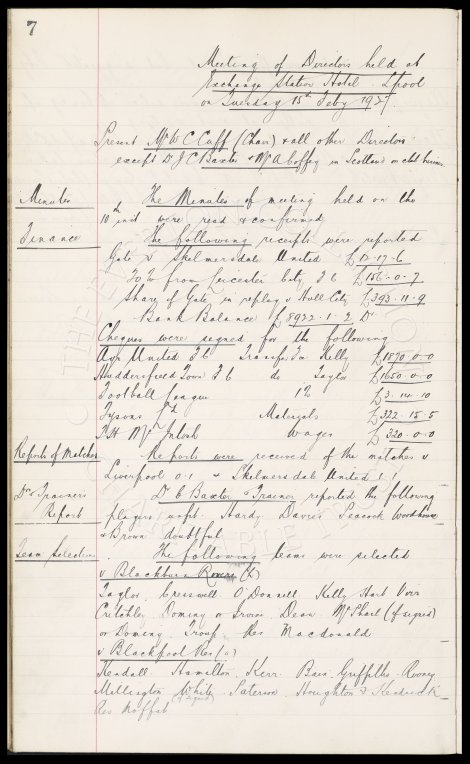 7
Meeting of Directors held at
Exchange Station Hotel L'pool
on Tuesday 15th Feby 1927.
Present Mr W C Cuff (Chair) & all other Directors
except Dr J C Baxter & Mr A Coffey in Scotland on club business
Minutes
The Minutes of meeting held on the
10th inst were read & confirmed
Finance
The following receipts were reported
Gate v Skelmersdale United £15-17-6
20% from Leicester City F C £156-0-7
Share of Gate in replay v Hull City £393-11-9
Bank Balance £8922-1-2 Dr
Cheques were signed for the following
Ayr United F C Transfer Fee Kelly £1870-0-0
Huddersfield Town F C do Taylor £1650-0-0
Football League 1% £3-14-10
Tysons Materials £322-15-5
T H McIntosh Wages £320-0-0
Reports of Matches
Reports were received of the matches v
Liverpool 0-1 & Skelmersdale United
Dr & Trainers
Report
Dr C Baxter & Trainer reported the following
players unfit. Hardy Davies Peacock Woodhouse
& Brown doubtful
Team Selection
The following teams were selected
v Blackburn Rovers (h)
Taylor. Cresswell O'Donnell Kelly Hart Virr
Critchley Dominy or Irvine Dean McPhail (if signed)
or Dominy. Troup. Res Macdonald
v Blackpool Res (a)
Kendall Hamilton. Kerr. Bain. Griffiths. Rooney
Millington White (if signed) Paterson Houghton & Kendrick
Res Moffat